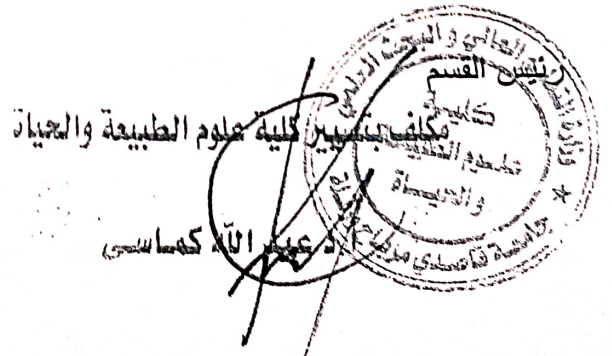 رئيس القسم
مكلف بتسيير كلية علوم الطبيعة والحياة
أ.د عبد الله كماسي
وزارة التعليم العالي و البحث العلمي
كلية
علوم الطبيعة
والحياة
جامعة قاصدي مرباح